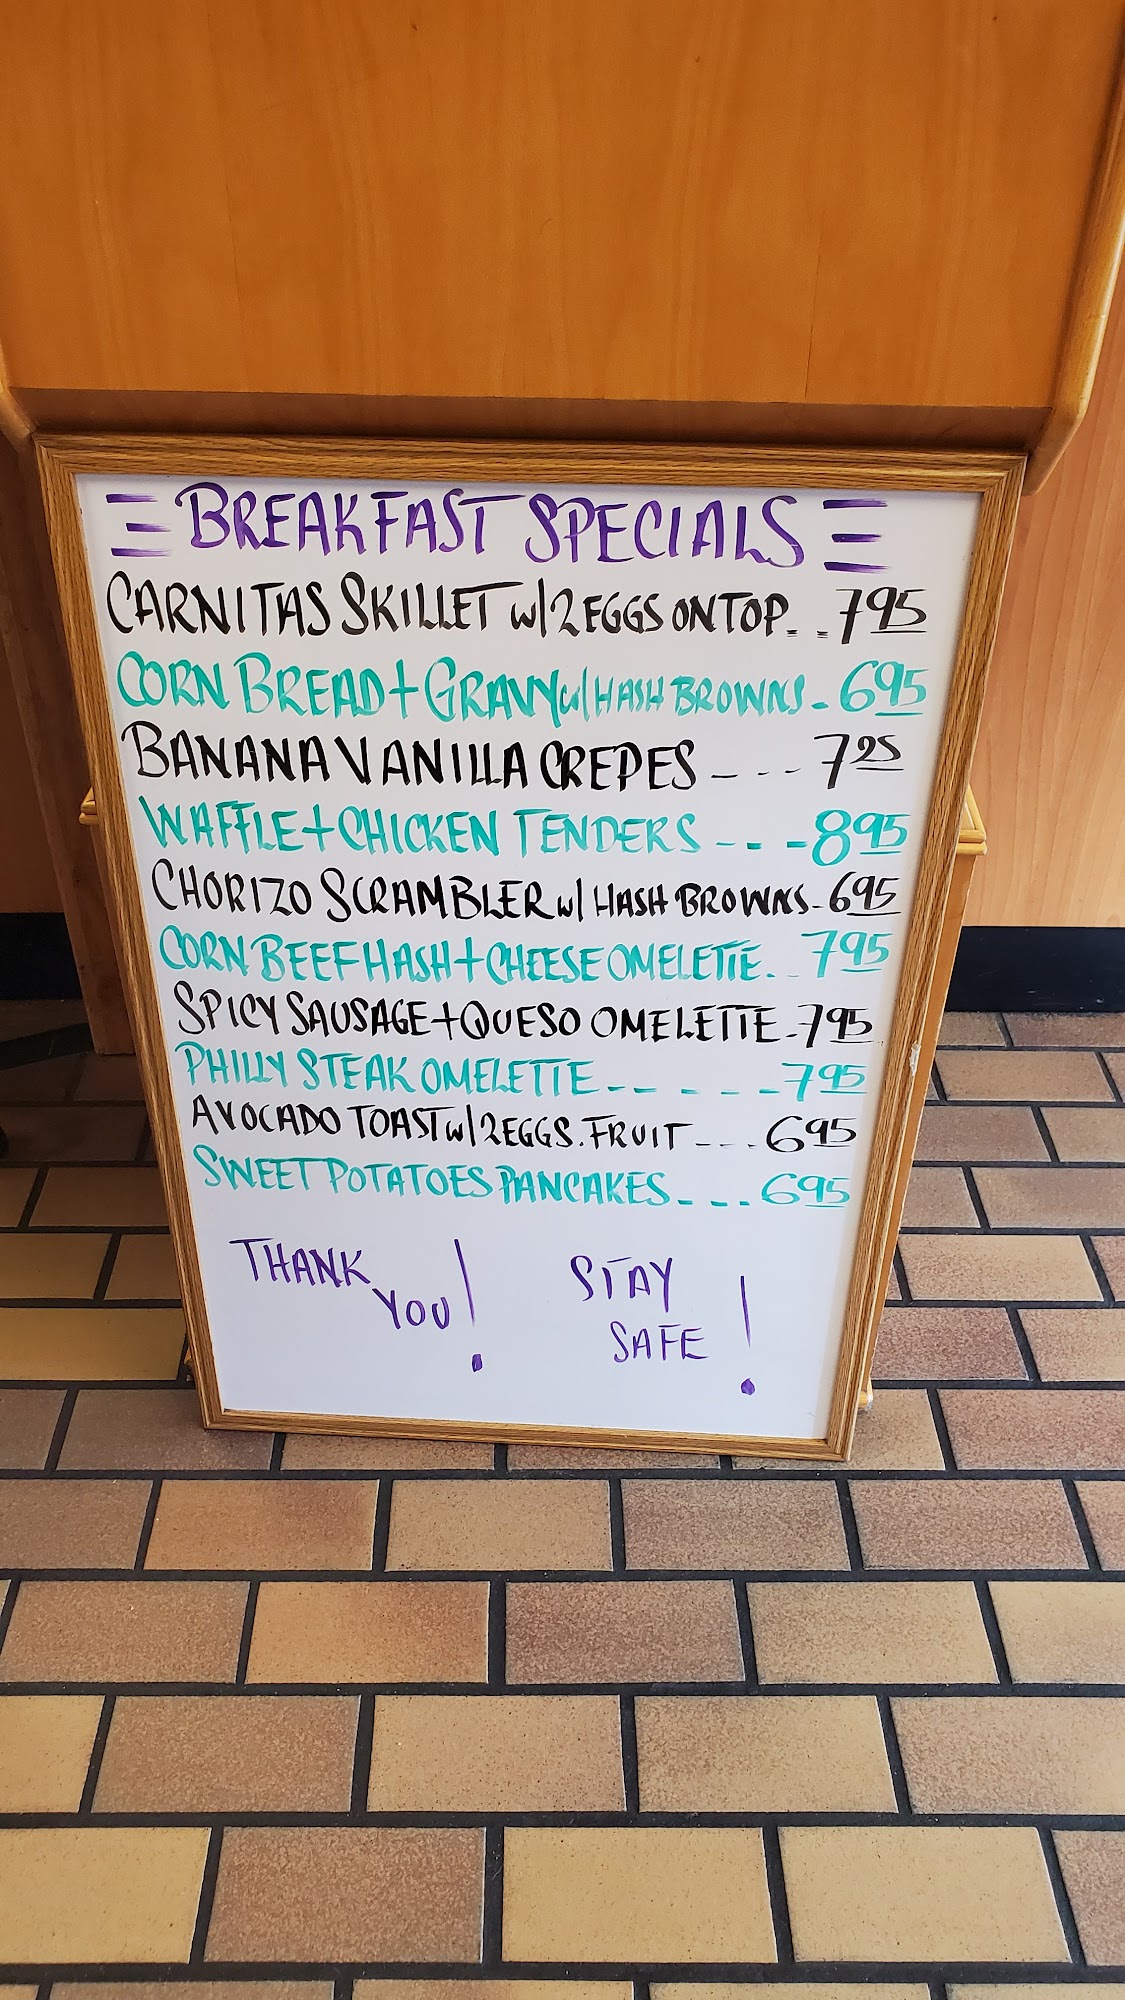 BREAKFAST SPECIALS
CARNITAS SKILLET w/2 EGGS ON TOP.. 795
CORN BREAD + GRAVY w/ HASH BROWNS - 695
BANANA VANILLA CREPES --- 725
WAFFLE + CHICKEN TENDERS --- 895
CHORIZO SCRAMBLER w/ HASH BROWNS - 695
CORN BEEF HASH + CHEESE OMELETTE... 795
SPICY SAUSAGE + QUESO OMELETTE - 795
PHILLY STEAK OMELETTE ----- 795
AVOCADO TOAST w/ 2 EGGS. FRUIT --- 695
SWEET POTATOES PANCAKES --- 695
THANK YOU!
STAY SAFE!